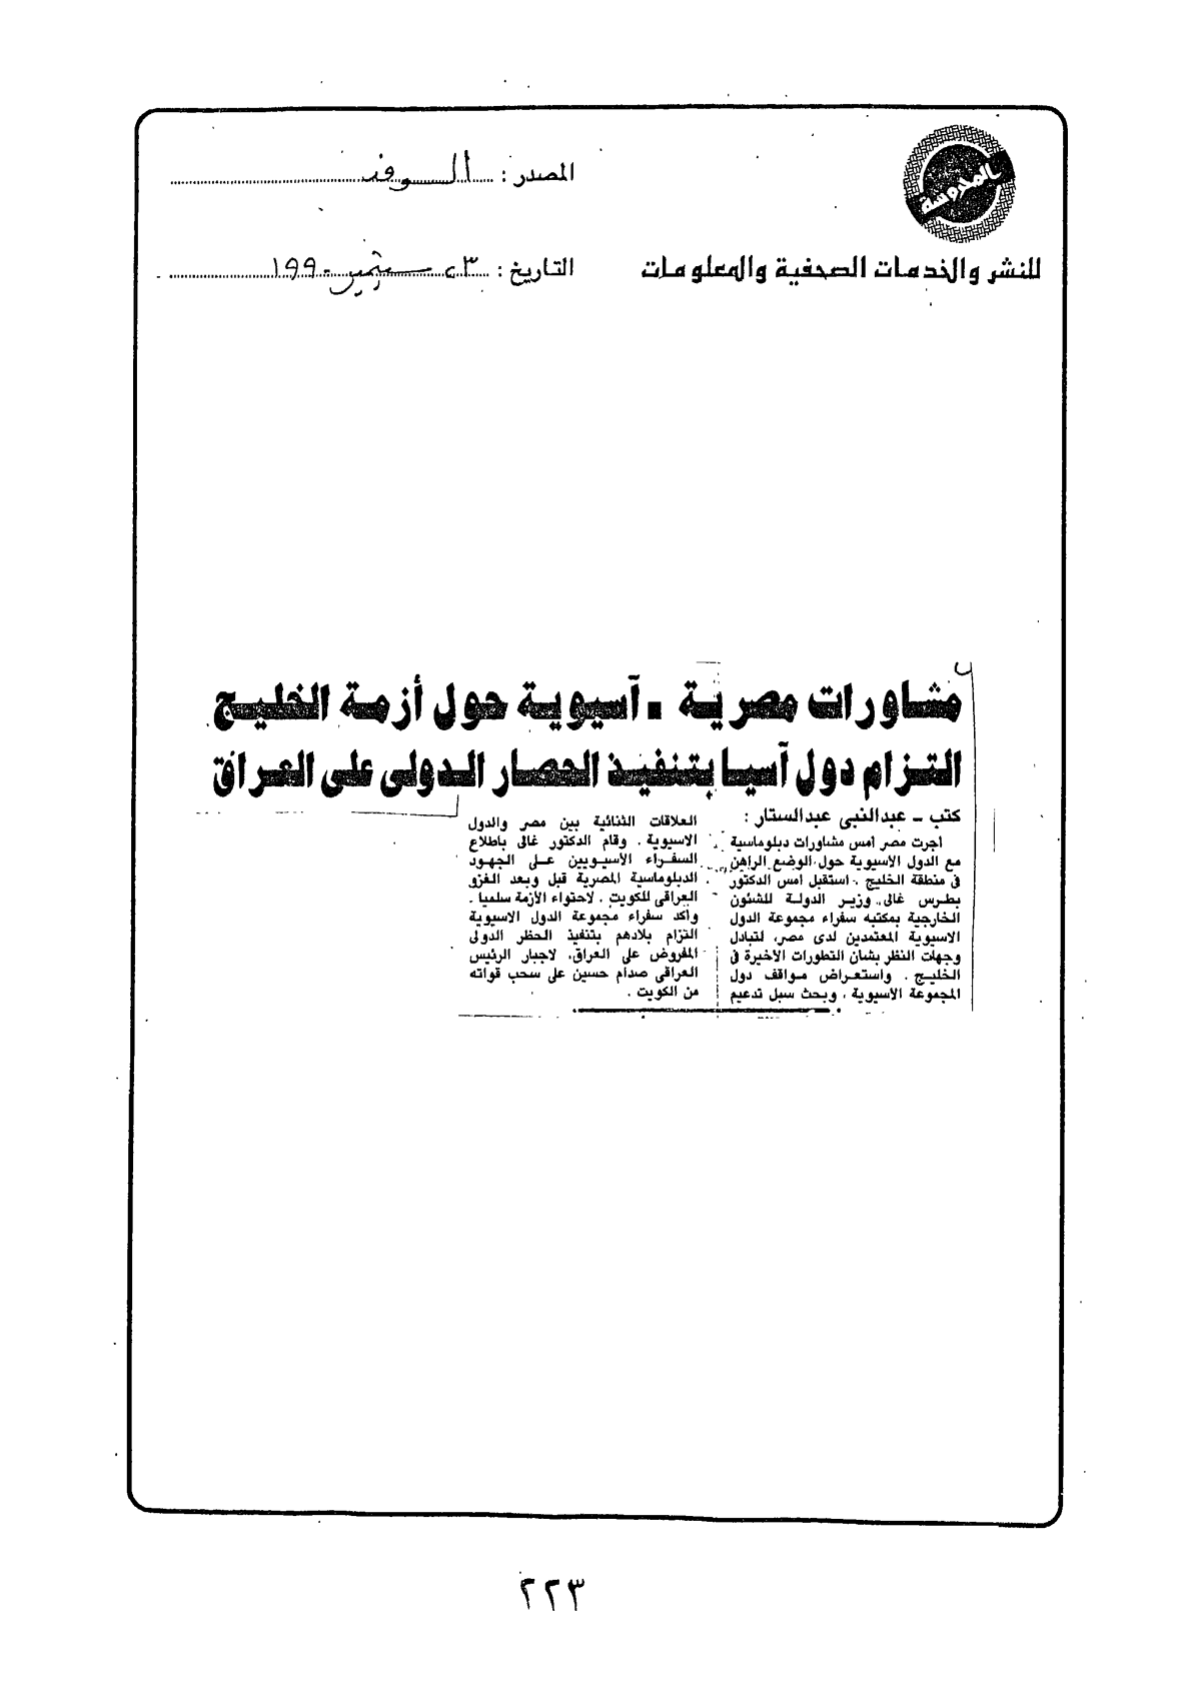 المدوسة
المصدر : الوفد
للنشر والخدمات الصحفية والمعلومات
التاريخ : ٢٣ سبتمبر ١٩٩٠
مشاورات مصرية ـ آسيوية حول أزمة الخليج
التزام دول آسيا بتنفيذ الحصار الدولى على العراق
كتب ـ عبدالنبى عبدالستار :
أجرت مصر أمس مشاورات دبلوماسية
مع الدول الاسيوية حول الوضع الراهن
فى منطقة الخليج . استقبل أمس الدكتور
بطرس غالى وزير الدولة للشئون
الخارجية بمكتبه سفراء مجموعة الدول
الاسيوية المعتمدين لدى مصر، لتبادل
وجهات النظر بشان التطورات الاخيرة فى
الخليج . واستعراض مواقف دول
المجموعة الاسيوية ، وبحث سبل تدعيم
العلاقات الثنائية بين مصر والدول
الاسيوية . وقام الدكتور غالى باطلاع
السفراء الاسيويين على الجهود
الدبلوماسية المصرية قبل وبعد الغزو
العراقى للكويت . لاحتواء الأزمة سلميا .
وأكد سفراء مجموعة الدول الاسيوية
التزام بلادهم بتنفيذ الحظر الدولى
المفروض على العراق، لاجبار الرئيس
العراقى صدام حسين على سحب قواته
من الكويت .
٢٢٣